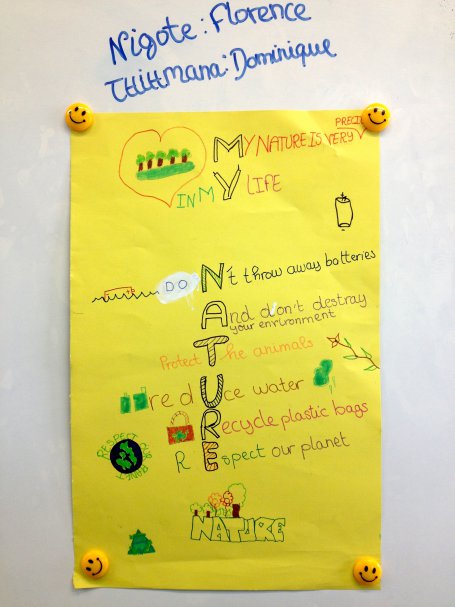 Nigote: Florence
Ttittmana: Dominique
MY NATURE IS VERY
IN MY LIFE
DON't throw away botteries
And don't destray
your environment
Protect The animals
redUce water
Recycle plastic bags
REspect our planet
RESPECT OUR PLANET
NATURE